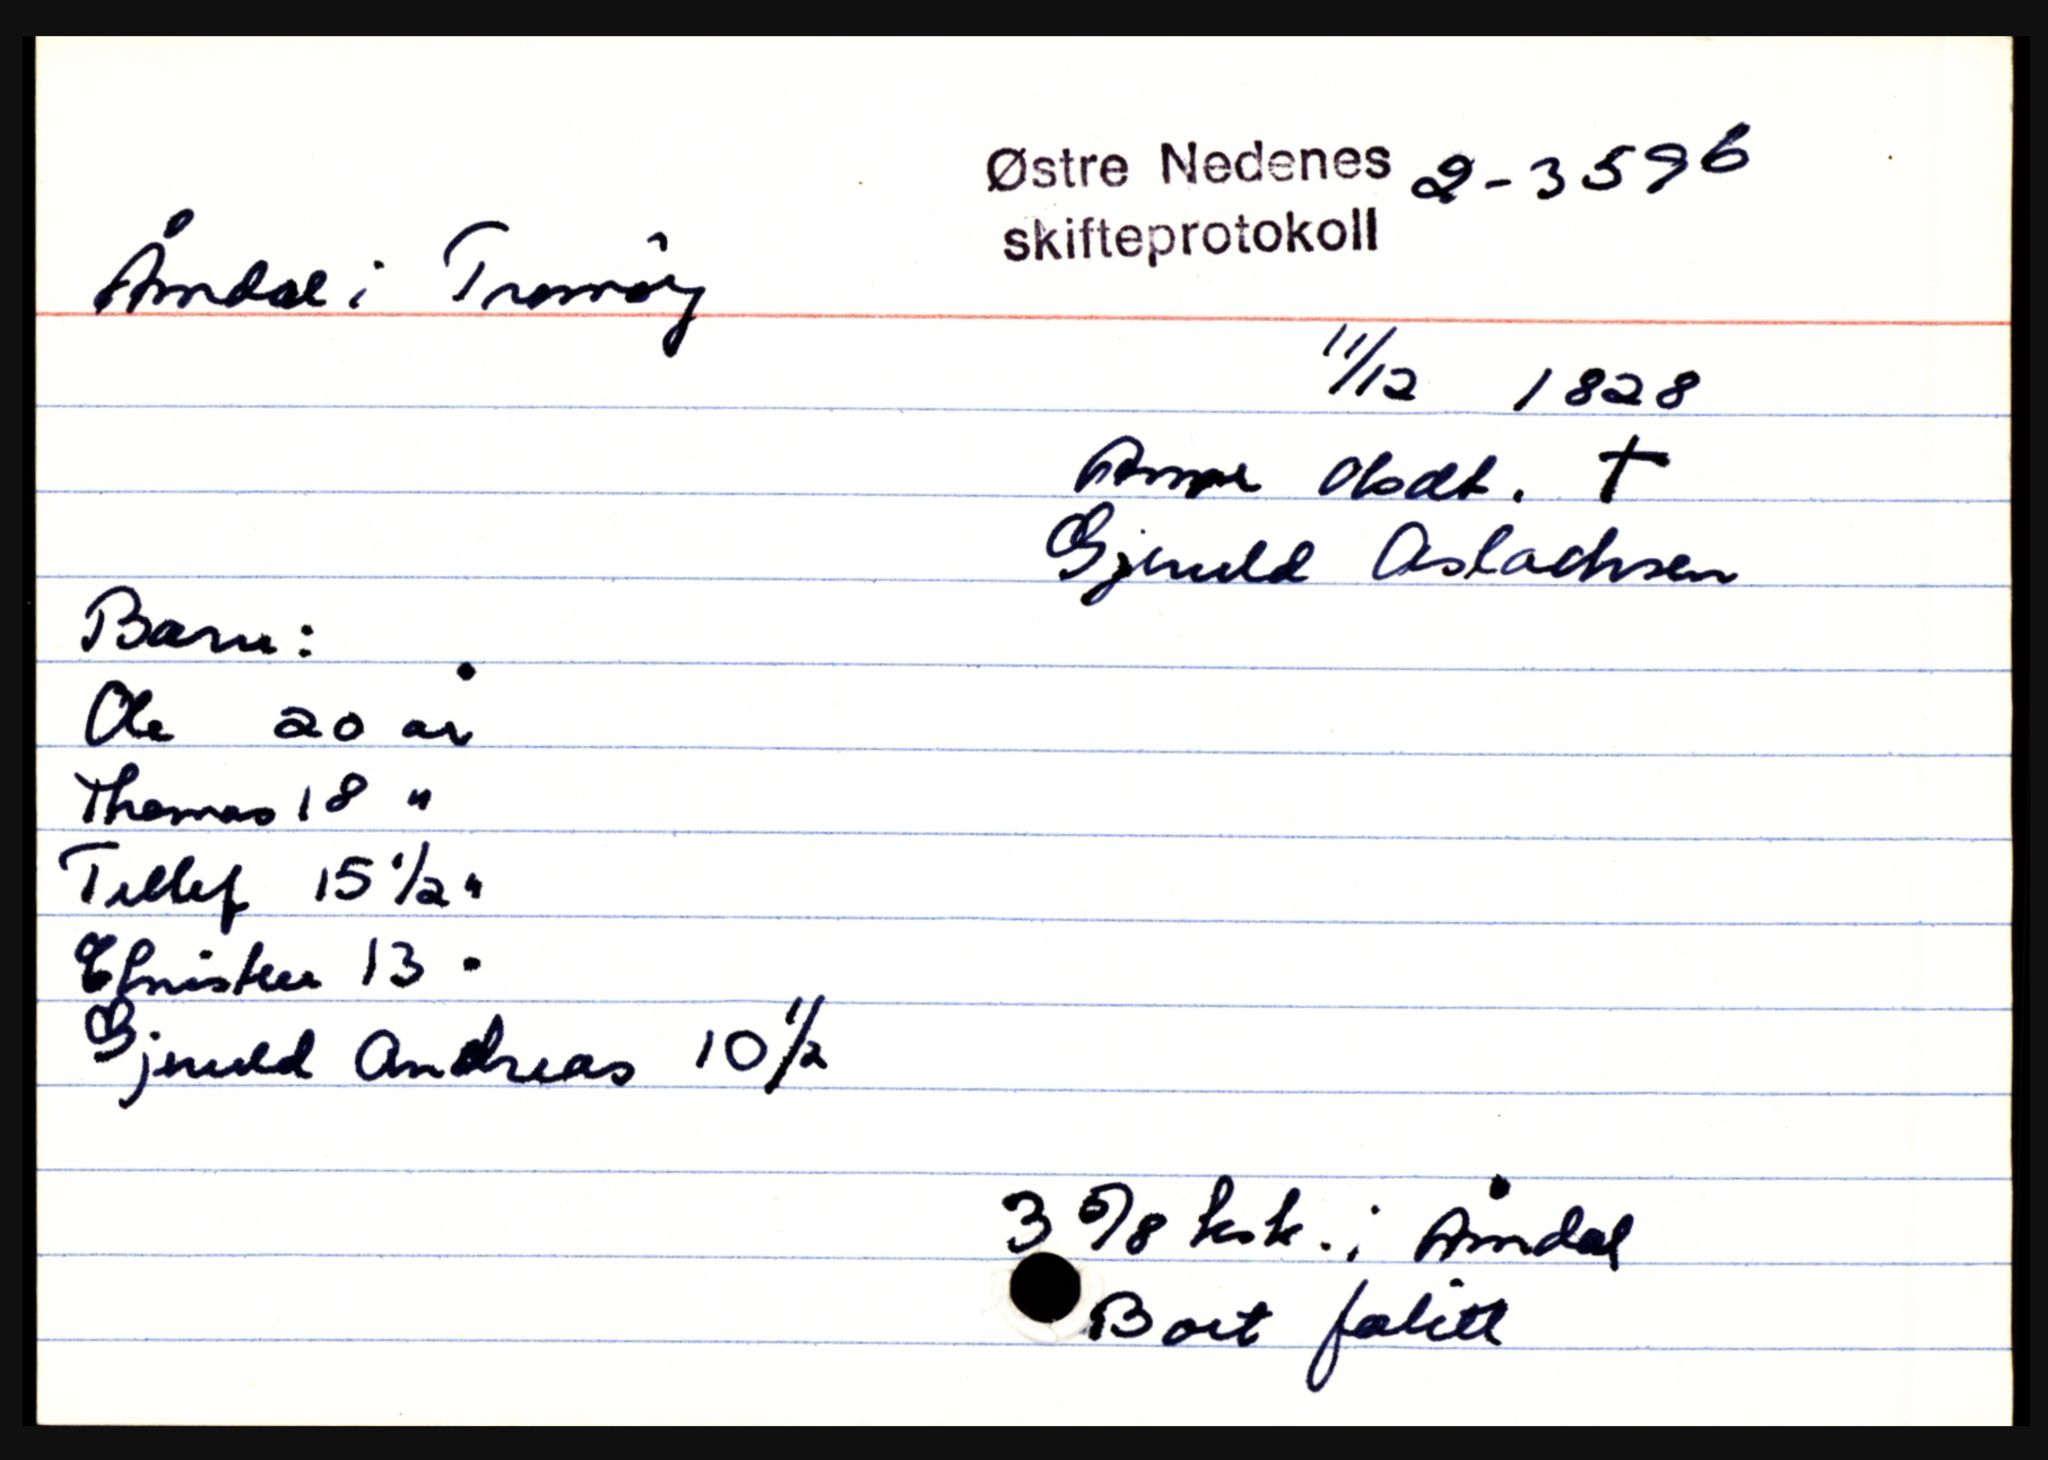 Østre Nedenes 2-3596
skifteprotokoll
Åmdal i Tromøy
11/12 1828
Anne Olsdt. †
Gjeruld Aslachsen
Barn:
Ole 20 år
Thomas 18 "
Tellef 15 1/2 "
Christen 13 "
Gjeruld Andreas 10 1/2
3 5/8 ksk. i Åmdal
Boet falitt